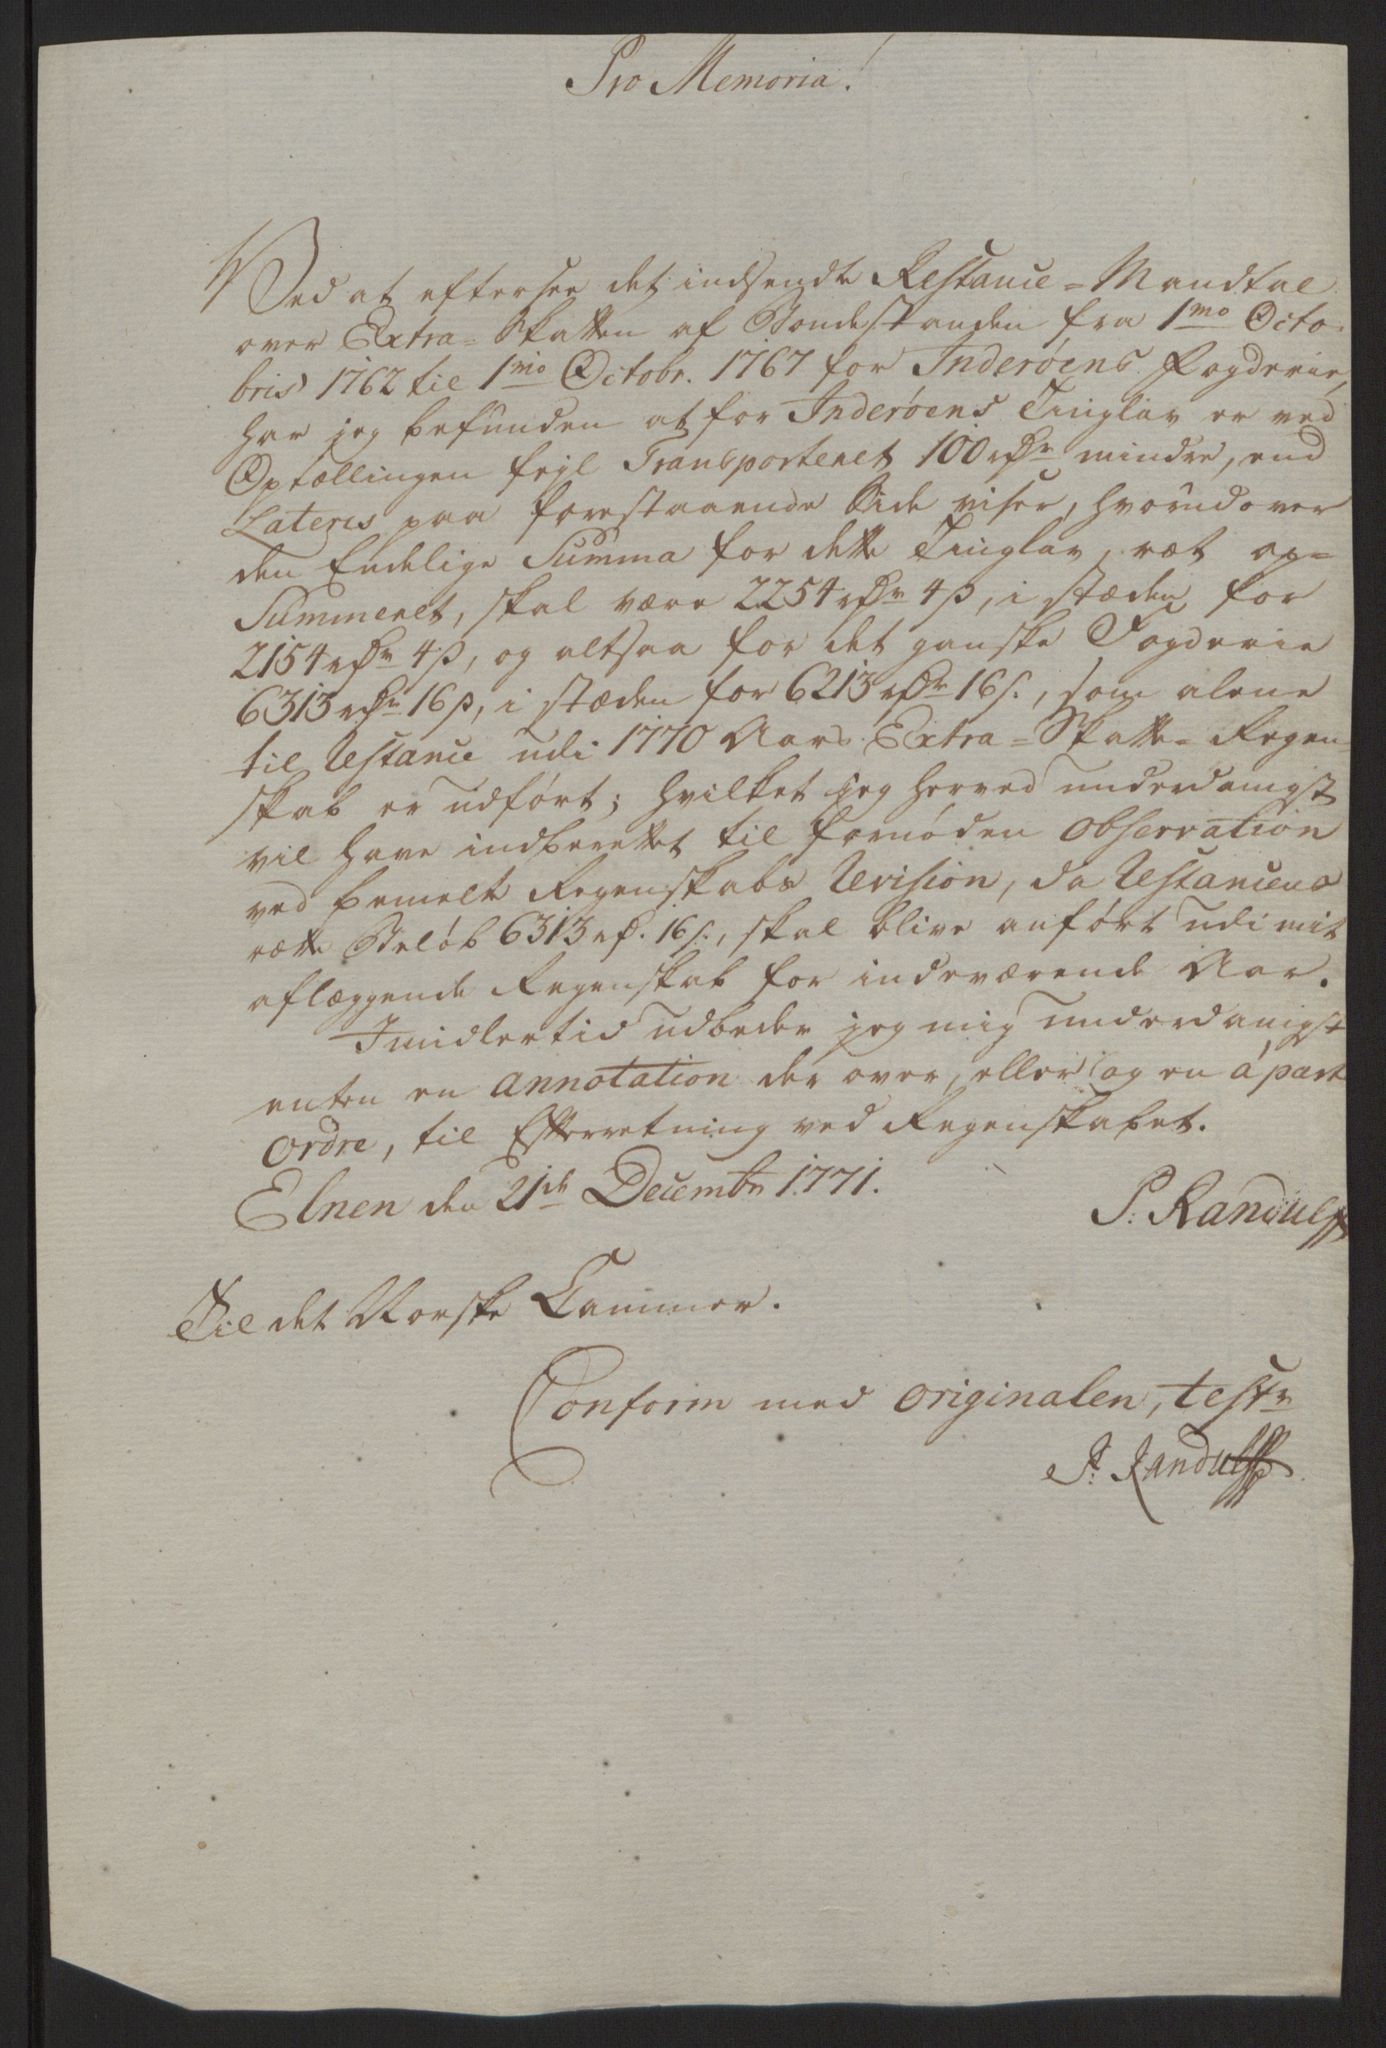 Pro Memoria!
Ved at eftersee det indsendte Restance-Mandtal
over Extra-Skatten af Bondestanden fra 1mo Octo-
bris 1762 til 1mo Octobr. 1767 for Inderøens Fogderie,
har jeg befunden at for Inderøens Tinglav er ved
Optællingen feyl Transporteret 100 rdr mindre, end
Lateris paa forestaaende Side viser, hvorudover
den Endelige Summa for dette Tinglav, ræt op-
Summeret, skal være 2254 rdr 4 β, i stæden for
2154 rdr 4 β, og altsaa for det ganske Fogderie
6313 rdr 16 β, i stæden for 6213 rdr 16 s., som alene
til Restance udi 1770 Aars Extra-Skatte-Regen-
skab er udført; hvilket jeg herved underdanigst
vil have indberettet til fornøden observation
ved bemelte Regenskabs Revision, da Restancens
rette Beløb 6313 rd. 16 s., skal blive anført udi mit
aflæggende Regenskab for indeværende Aar.
Imidlertid udbeder jeg mig underdanigst
enten en annotation der over, eller og en á part
ordre, til Efterretning ved Regenskabet.
Elnen den 21de Decembr 1771.
P: Randulff
Til det Norske Cammer.
Conform med originalen, test
P: Randulff